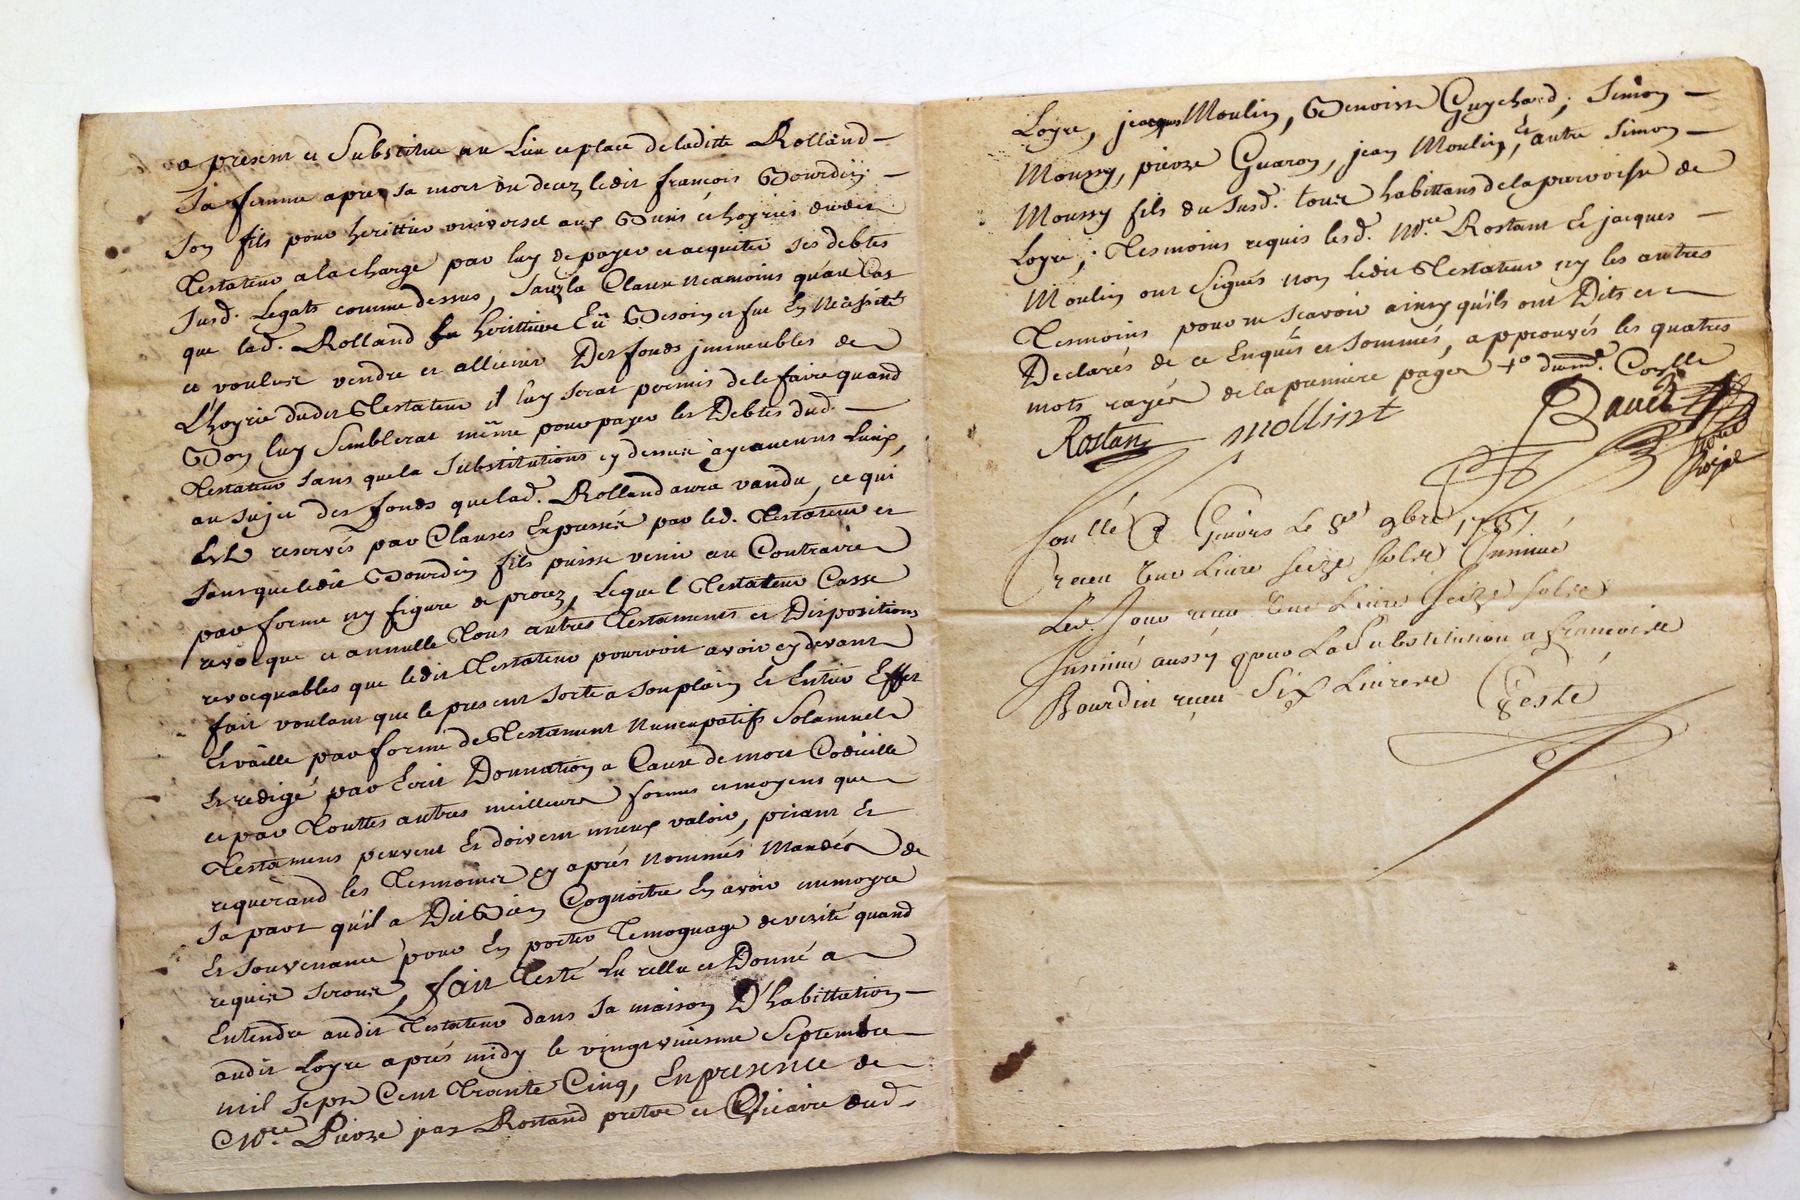 a present et Substitue au Lieu et place de laditte Rolland
Sa femme apres sa mort ou decez ledit françois Bourdin
son fils pour herittier universel aux Biens et hoyries dudit
Testateur a la charge par luy de payer et acquitter ses debtes
susd. Legats comme dessus, sauf la Clause neamoins qu'au Cas
que lad. Rolland sa herittiere Eû Besoin et fut En Necessité
et voulut vendre et alliener Des fonds immeubles de
L'hoyrie dudit Testateur il luy serat permis de le faire quand
Bon luy Semblerat même pour payer les Debtes dud.
Testateur sans que la Substitutions cy dessus aye aucuns Lieux,
au sujet des fonds que lad. Rolland aura vandu, ce qui
Est reservés par Clauses Expresses par led. Testateur et
sans que ledit Bourdin fils puisse venir au Contraire
par forme ny figure de procez, Lequel Testateur Casse
revocque et annulle Tous autres Testaments et Dispositions
revocquables que ledit Testateur pourroit avoir cy devant
fait voulant que le present sorte a son plain Et Entier Effet
Et vaille par forme de Testament Nuncupatifs Solamnel
Et redigé par Ecrit Donnation a Cause de mort Codicille
et par Touttes autres meilleures formes et moyens que
Testamens peuvent Et doivent mieux valoir, priant Et
requerand les Tesmoins cy aprés Nommés Mandés de
sa part qu'il a Dit Bien Cognoitre En avoir memoyre
Et souvenance pour En porter Temognage de verité quand
requis seront, fait Testé Lu rellu et Donné a
Entendre audit Testateur dans sa maison D'habittation
audit Loyre aprés midy le vingt Septembre
mil sept Cent Trante Cinq, En presence de
Mre. Pierre Rostand pretre et Vicaire dud.
Loyre, jacques Moulin, Benoist Guychard, Simon
Moussy, pierre Guaron, jean Moulin, Et autre Simon
Moussy fils du susd. tous habittans de la parroisse de
Loyre, Tesmoins requis lesd. Mre. Rostant Et jacques
Moulin ont Signés non ledit Testateur ny les autres
Tesmoins pour ne scavoir ainsy qu'ils ont Dits et
Declarés de ce Enquis et Sommés, approuvés les quatres
mots rayés de la premiere pages
Rostan mollint
Contllé a Givors Le 9bre
receu Une Livre seize sols Insinué
Led. Jour receu Une Livre Seize sols
Insinué aussy pour La Substitution a francois
Bourdin receu Six Livres